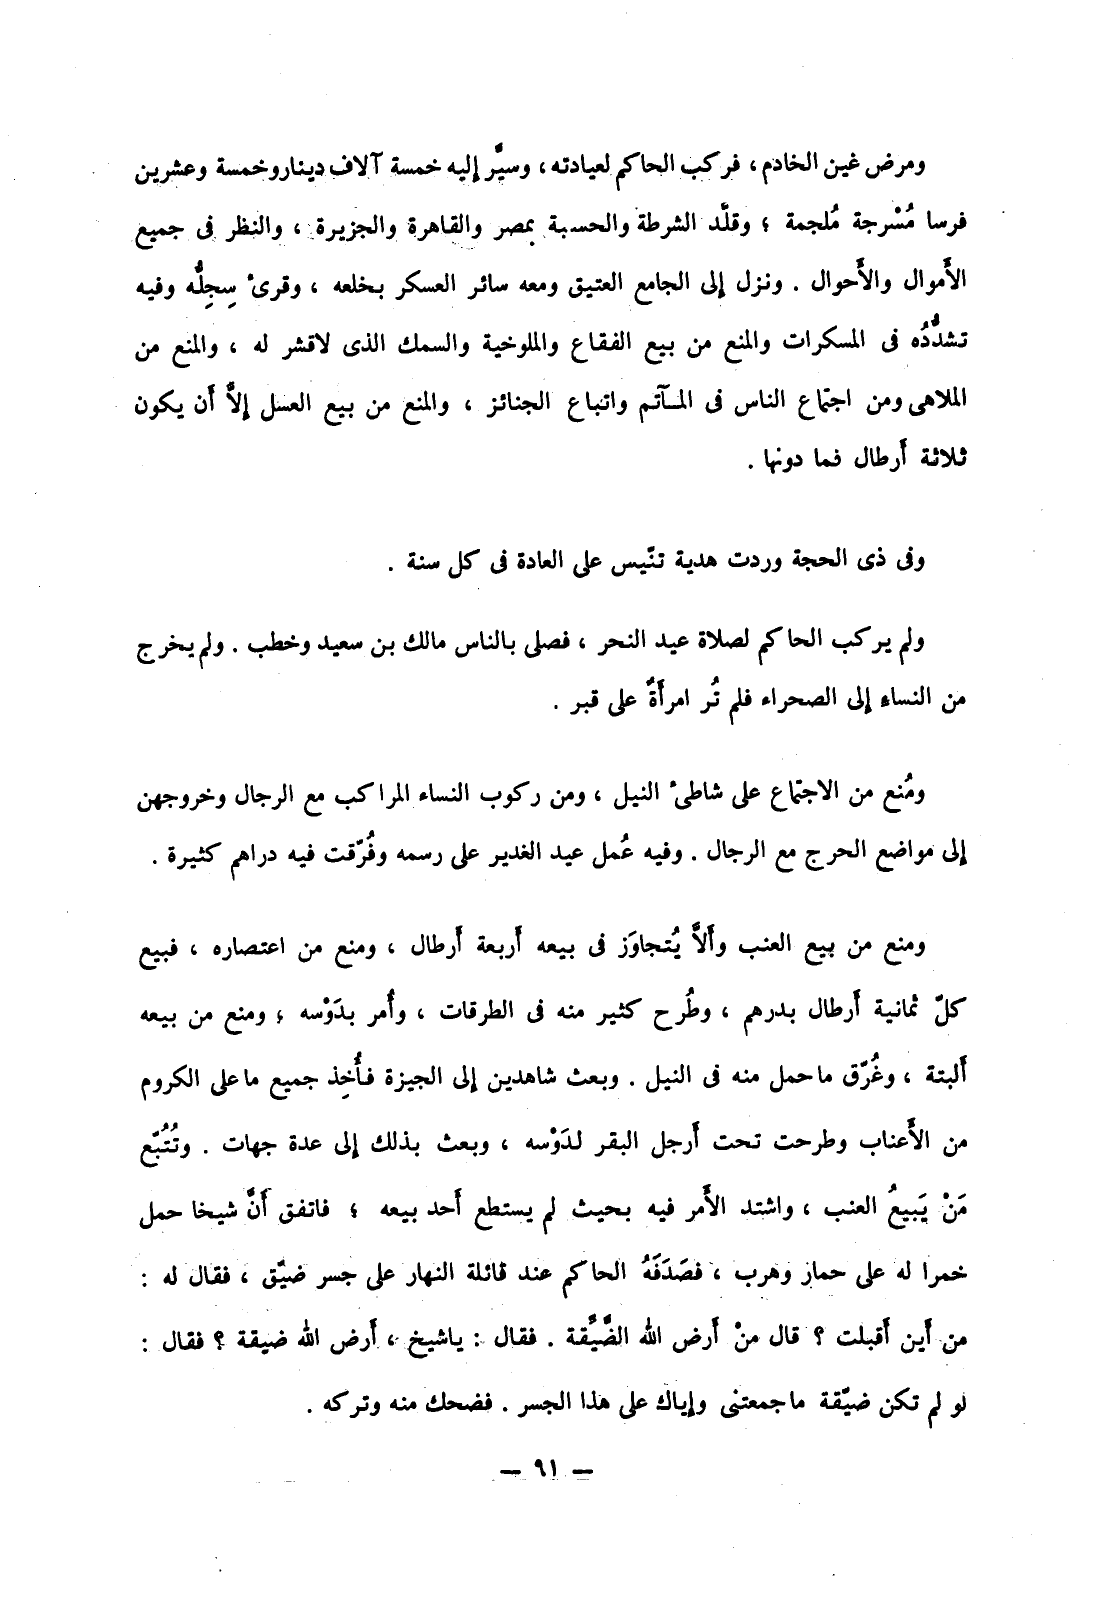 ومرض غين الخادم ، فركب الحاكم لعيادته ، وسيَّر إليه خمسة آلاف دينار وخمسة وعشرين
فرسا مُسْرجة مُلجمة ؛ وقلَّد الشرطة والحسبة بمصر والقاهرة والجزيرة ، والنظر فى جميع
الأَموال والأَحوال . ونزل إلى الجامع العتيق ومعه سائر العسكر بخلعه ، وقرئ سِجِلُّه وفيه
تشدُّدُه فى المسكرات والمنع من بيع الفقاع والملوخية والسمك الذى لاقشر له ، والمنع من
الملاهى ومن اجتماع الناس فى المـآتم واتباع الجنائز ، والمنع من بيع العسل إلاَّ أَن يكون
ثلاثة أَرطال فما دونها .
وفى ذى الحجة وردت هدية تنّيس على العادة فى كل سنة .
ولم يركب الحاكم لصلاة عيد النحر ، فصلى بالناس مالك بن سعيد وخطب . ولم يخرج
من النساء إلى الصحراء فلم تُر امرأَةٌ على قبر .
ومُنع من الاجتماع على شاطئ النيل ، ومن ركوب النساء المراكب مع الرجال وخروجهن
إلى مواضع الحرج مع الرجال . وفيه عُمل عيد الغدير على رسمه وفُرّقت فيه دراهم كثيرة .
ومنع من بيع العنب وأَلاَّ يُتجاوَز فى بيعه أَربعة أَرطال ، ومنع من اعتصاره ، فبيع
كلّ ثمانية أَرطال بدرهم ، وطُرح كثير منه فى الطرقات ، وأُمر بدَوْسه ؛ ومنع من بيعه
أَلبتة ، وغُرّق ماحمل منه فى النيل . وبعث شاهدين إلى الجيزة فأُخِذ جميع ماعلى الكروم
من الأَعناب وطرحت تحت أَرجل البقر لدَوْسه ، وبعث بذلك إلى عدة جهات . وتُتُبّع
مَنْ يَبيعُ العنب ، واشتد الأَمر فيه بحيث لم يستطع أَحد بيعه ؛ فاتفق أَنَّ شيخا حمل
خمرا له على حمار وهرب ، فصَدَفَهُ الحاكم عند قائلة النهار على جسر ضيّق ، فقال له :
من أَين أَقبلت ؟ قال منْ أَرض الله الضَّيِّقة . فقال : ياشيخ ، أَرض الله ضيقة ؟ فقال :
لو لم تكن ضيّقة ماجمعتنى وإياك على هذا الجسر . فضحك منه وتركه .
— ٩١ —